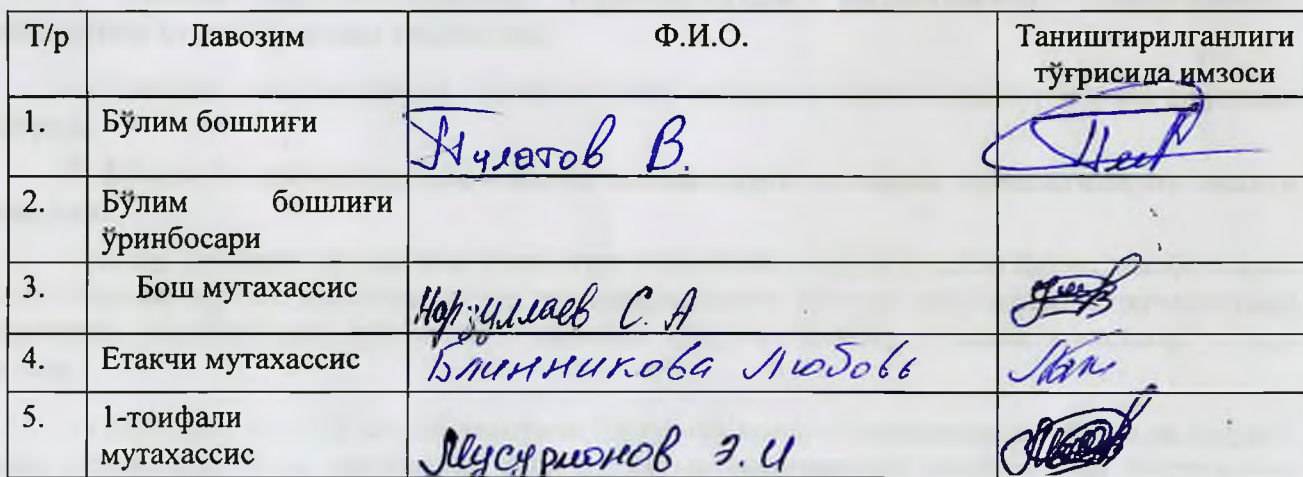 Т/р Лавозим Ф.И.О. Таништирилганлиги
тўғрисида имзоси
1. Бўлим бошлиғи Пулатов В.
2. Бўлим бошлиғи
ўринбосари
3. Бош мутахассис Нарзуллаев С.А
4. Етакчи мутахассис Блинникова Любовь
5. 1-тоифали
мутахассис Мусурмонов Э.И